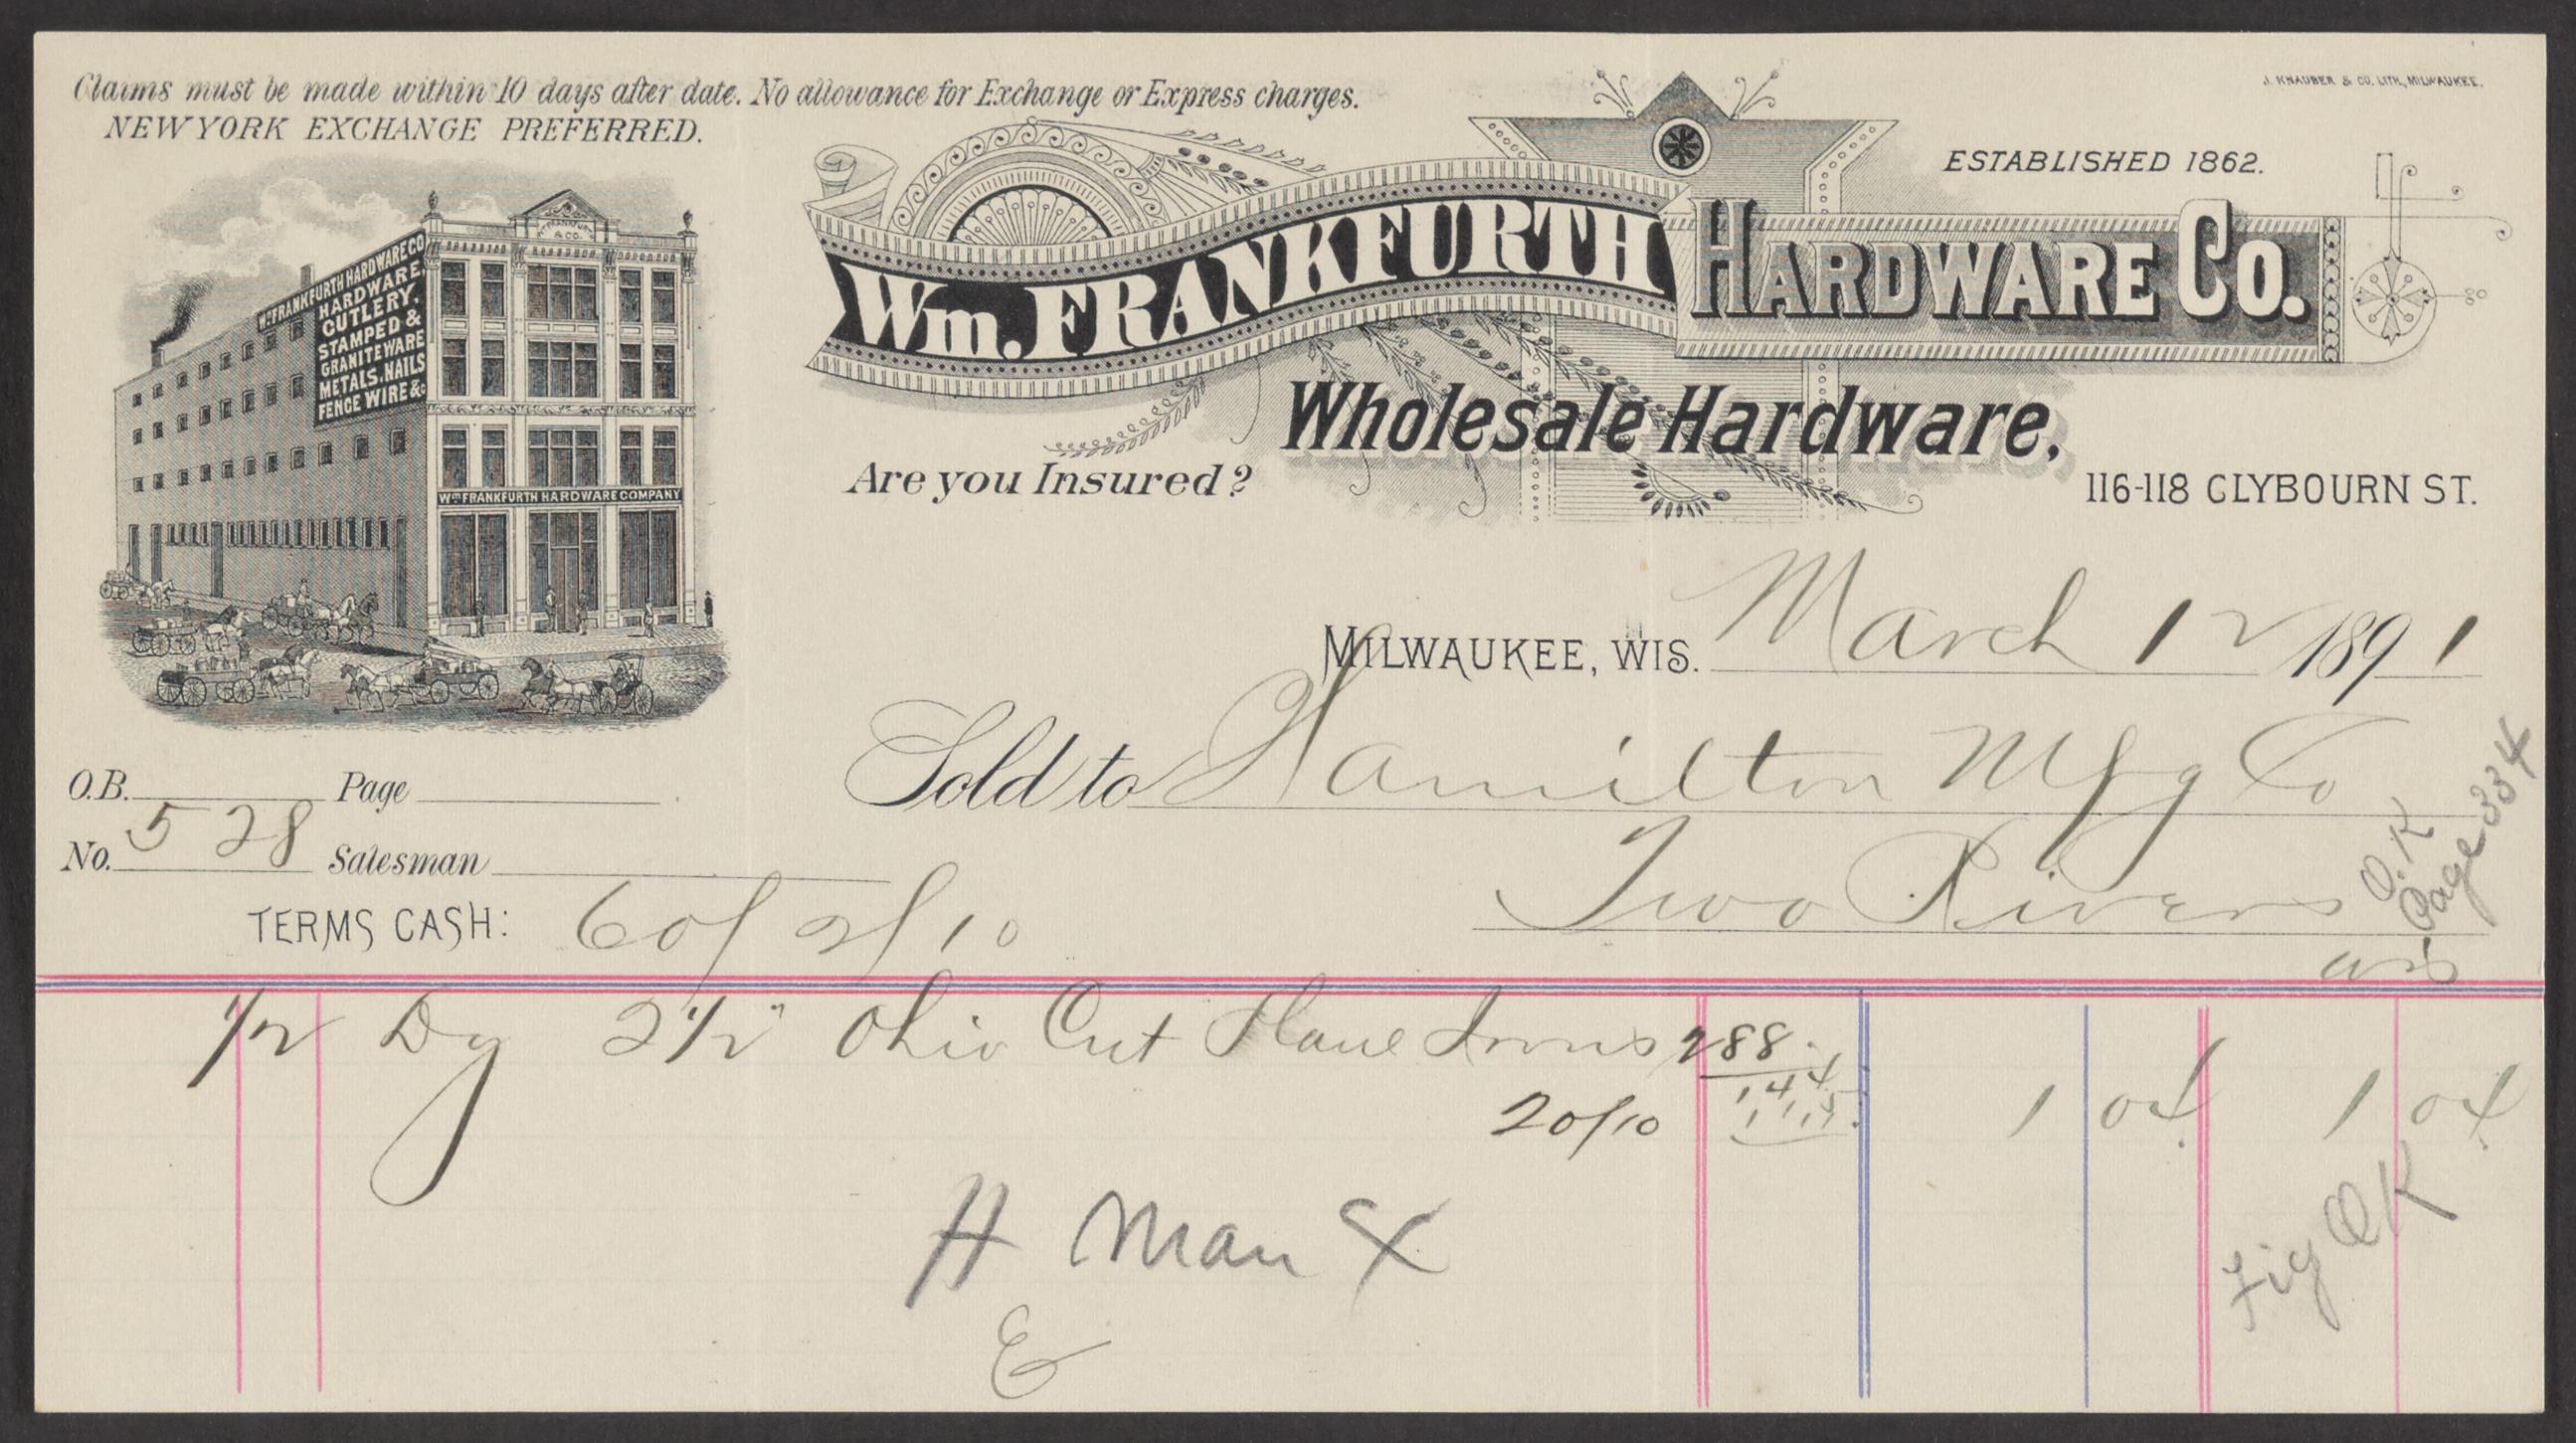 Claims must be made within 10 days after date. No allowance for Exchange or Express charges.
NEW YORK EXCHANGE PREFERRED.
J. KNAUBER & CO. LITH., MILWAUKEE.
ESTABLISHED 1862.
Wm. FRANKFURTH HARDWARE CO.
Wholesale Hardware,
Are you Insured?
116-118 CLYBOURN ST.
Wm. FRANKFURTH & CO.
Wm. FRANKFURTH HARDWARE CO
HARDWARE,
CUTLERY,
STAMPED &
GRANITEWARE
METALS, NAILS
FENCE WIRE &c
Wm. FRANKFURTH HARDWARE COMPANY
MILWAUKEE, WIS. March 12 1891
Sold to Hamilton Mfg Co
Two Rivers
Wis
O.K
Page 334
O.B. Page
No. 528 Salesman
TERMS CASH: 60/ 2/10
1/2 Dz 2 1/2" Ohio Cut Plane Irons 288
144
20/10 115
1 04 1 04
H Man X
Fig OK